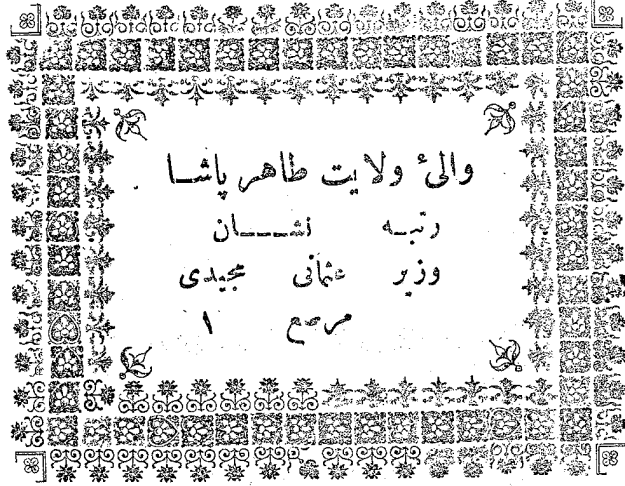 والیٔ ولایت طاهر پاشا
رتبه نشان
وزیر عثمانی مجیدی
مرصع ۱